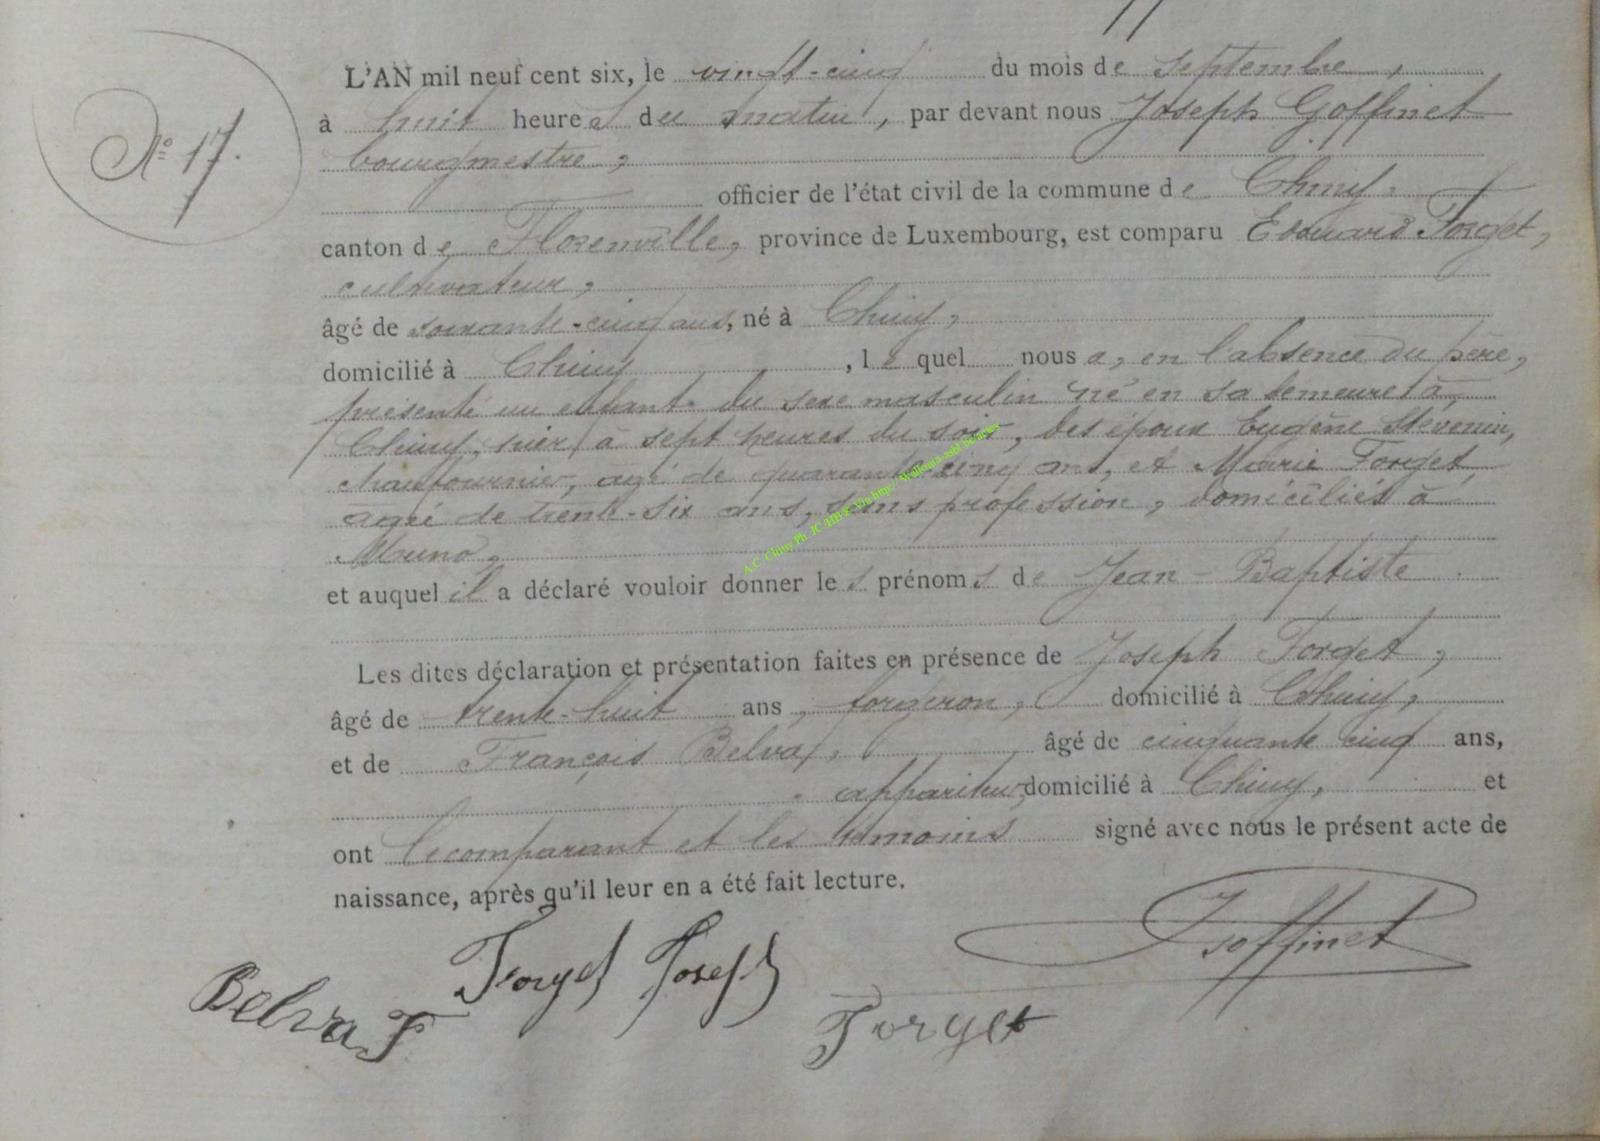 N° 17.
L'AN mil neuf cent six, le vingt-cinq du mois de septembre,
à huit heures du matin, par devant nous Joseph Goffinet
bourgmestre,
officier de l'état civil de la commune de Chiny,
canton de Florenville, province de Luxembourg, est comparu Edouard Forget,
cultivateur,
âgé de soixante-cinq ans, né à Chiny,
domicilié à Chiny, lequel nous a, en l'absence du père,
présenté un enfant du sexe masculin né en sa demeure à
Chiny, hier à sept heures du soir, des époux Eugène Stévenin,
chaufournier, agé de quarante-cinq ans, et Marie Forget,
agée de trente-six ans, sans profession, domiciliés à
Muno,
et auquel il a déclaré vouloir donner les prénoms de Jean-Baptiste
Les dites déclaration et présentation faites en présence de Joseph Forget,
âgé de trente-huit ans, forgeron, domicilié à Chiny,
et de François Belva, âgé de cinquante cinq ans,
appariteur, domicilié à Chiny, et
ont le comparant et les témoins signé avec nous le présent acte de
naissance, après qu'il leur en a été fait lecture.
Belva F Forget Joseph Goffinet
Forget
A.C. Chiny Ph. JC